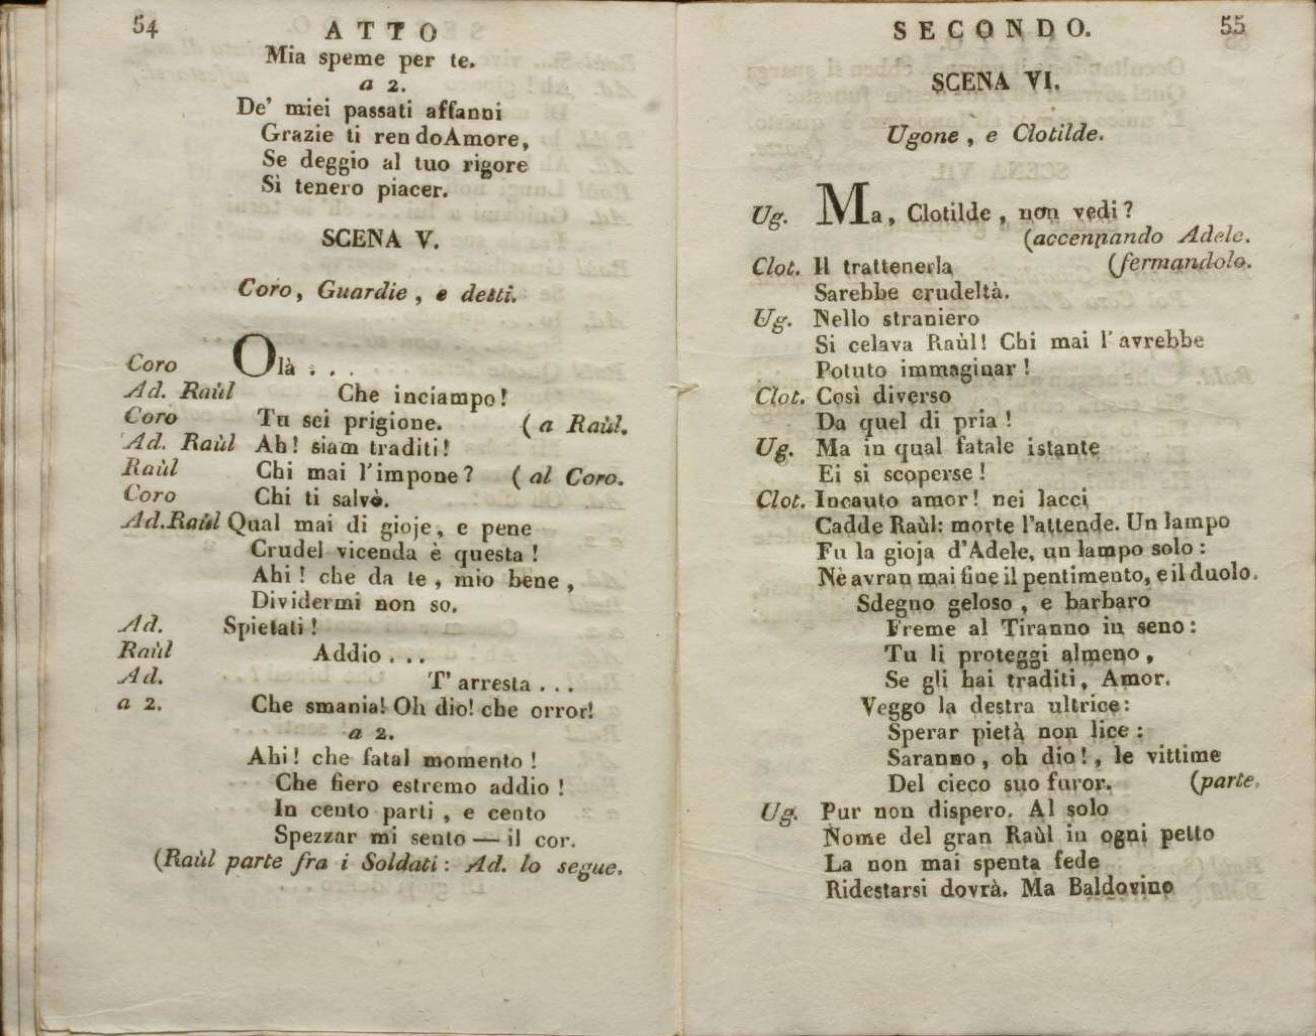 54
ATTO
Mia speme per te.
a 2.
De' miei passati affanni
Grazie ti ren doAmore,
Se deggio al tuo rigore
Sì tenero piacer.
SCENA V.
Coro, Guardie, e detti.
Coro Olà . . .
Ad. Raùl Che inciampo!
Coro Tu sei prigione. (a Raùl.
Ad. Raùl Ah! siam traditi!
Raùl Chi mai l'impone? (al Coro.
Coro Chi ti salvò.
Ad.Raùl Qual mai di gioje, e pene
Crudel vicenda è questa!
Ahi! che da te, mio bene,
Dividermi non so.
Ad. Spietati!
Raùl Addio . . .
Ad. T' arresta . . .
a 2. Che smania! Oh dio! che orror!
a 2.
Ahi! che fatal momento!
Che fiero estremo addio!
In cento parti, e cento
Spezzar mi sento — il cor.
(Raùl parte fra i Soldati: Ad. lo segue.
SECONDO.
55
SCENA VI.
Ugone, e Clotilde.
Ug. Ma, Clotilde, non vedi?
(accennando Adele.
Clot. Il trattenerla (fermandolo.
Sarebbe crudeltà.
Ug. Nello straniero
Si celava Raùl! Chi mai l'avrebbe
Potuto immaginar!
Clot. Così diverso
Da quel di pria!
Ug. Ma in qual fatale istante
Ei si scoperse!
Clot. Incauto amor! nei lacci
Cadde Raùl: morte l'attende. Un lampo
Fu la gioja d'Adele, un lampo solo:
Nè avran mai fine il pentimento, e il duolo.
Sdegno geloso, e barbaro
Freme al Tiranno in seno:
Tu li proteggi almeno,
Se gli hai traditi, Amor.
Veggo la destra ultrice:
Sperar pietà non lice:
Saranno, oh dio!, le vittime
Del cieco suo furor. (parte.
Ug. Pur non dispero. Al solo
Nome del gran Raùl in ogni petto
La non mai spenta fede
Ridestarsi dovrà. Ma Baldovino